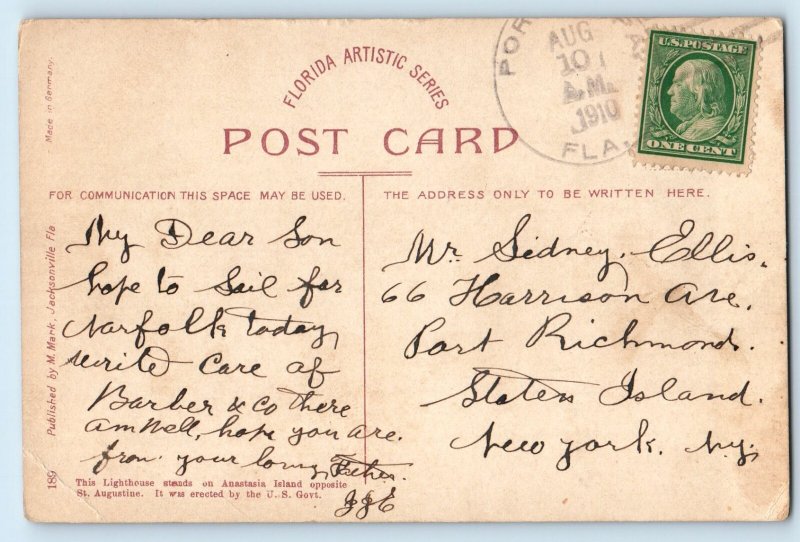 FLORIDA ARTISTIC SERIES
POST CARD
Made in Germany.
POR
AUG
10
A.M.
1910
FLA.
U.S. POSTAGE
ONE CENT
FOR COMMUNICATION THIS SPACE MAY BE USED.
THE ADDRESS ONLY TO BE WRITTEN HERE.
My Dear Son
hope to Sail for
Norfolk today
write Care of
Barber & Co there
am Well, hope you are.
from your loving Father
JJE
Mr. Sidney. Ellis.
66 Harrison Ave.
Port Richmond.
Staten Island.
New York. N.Y.
Published by M. Mark, Jacksonville Fla
189
This Lighthouse stands on Anastasia Island opposite
St. Augustine. It was erected by the U.S. Govt.